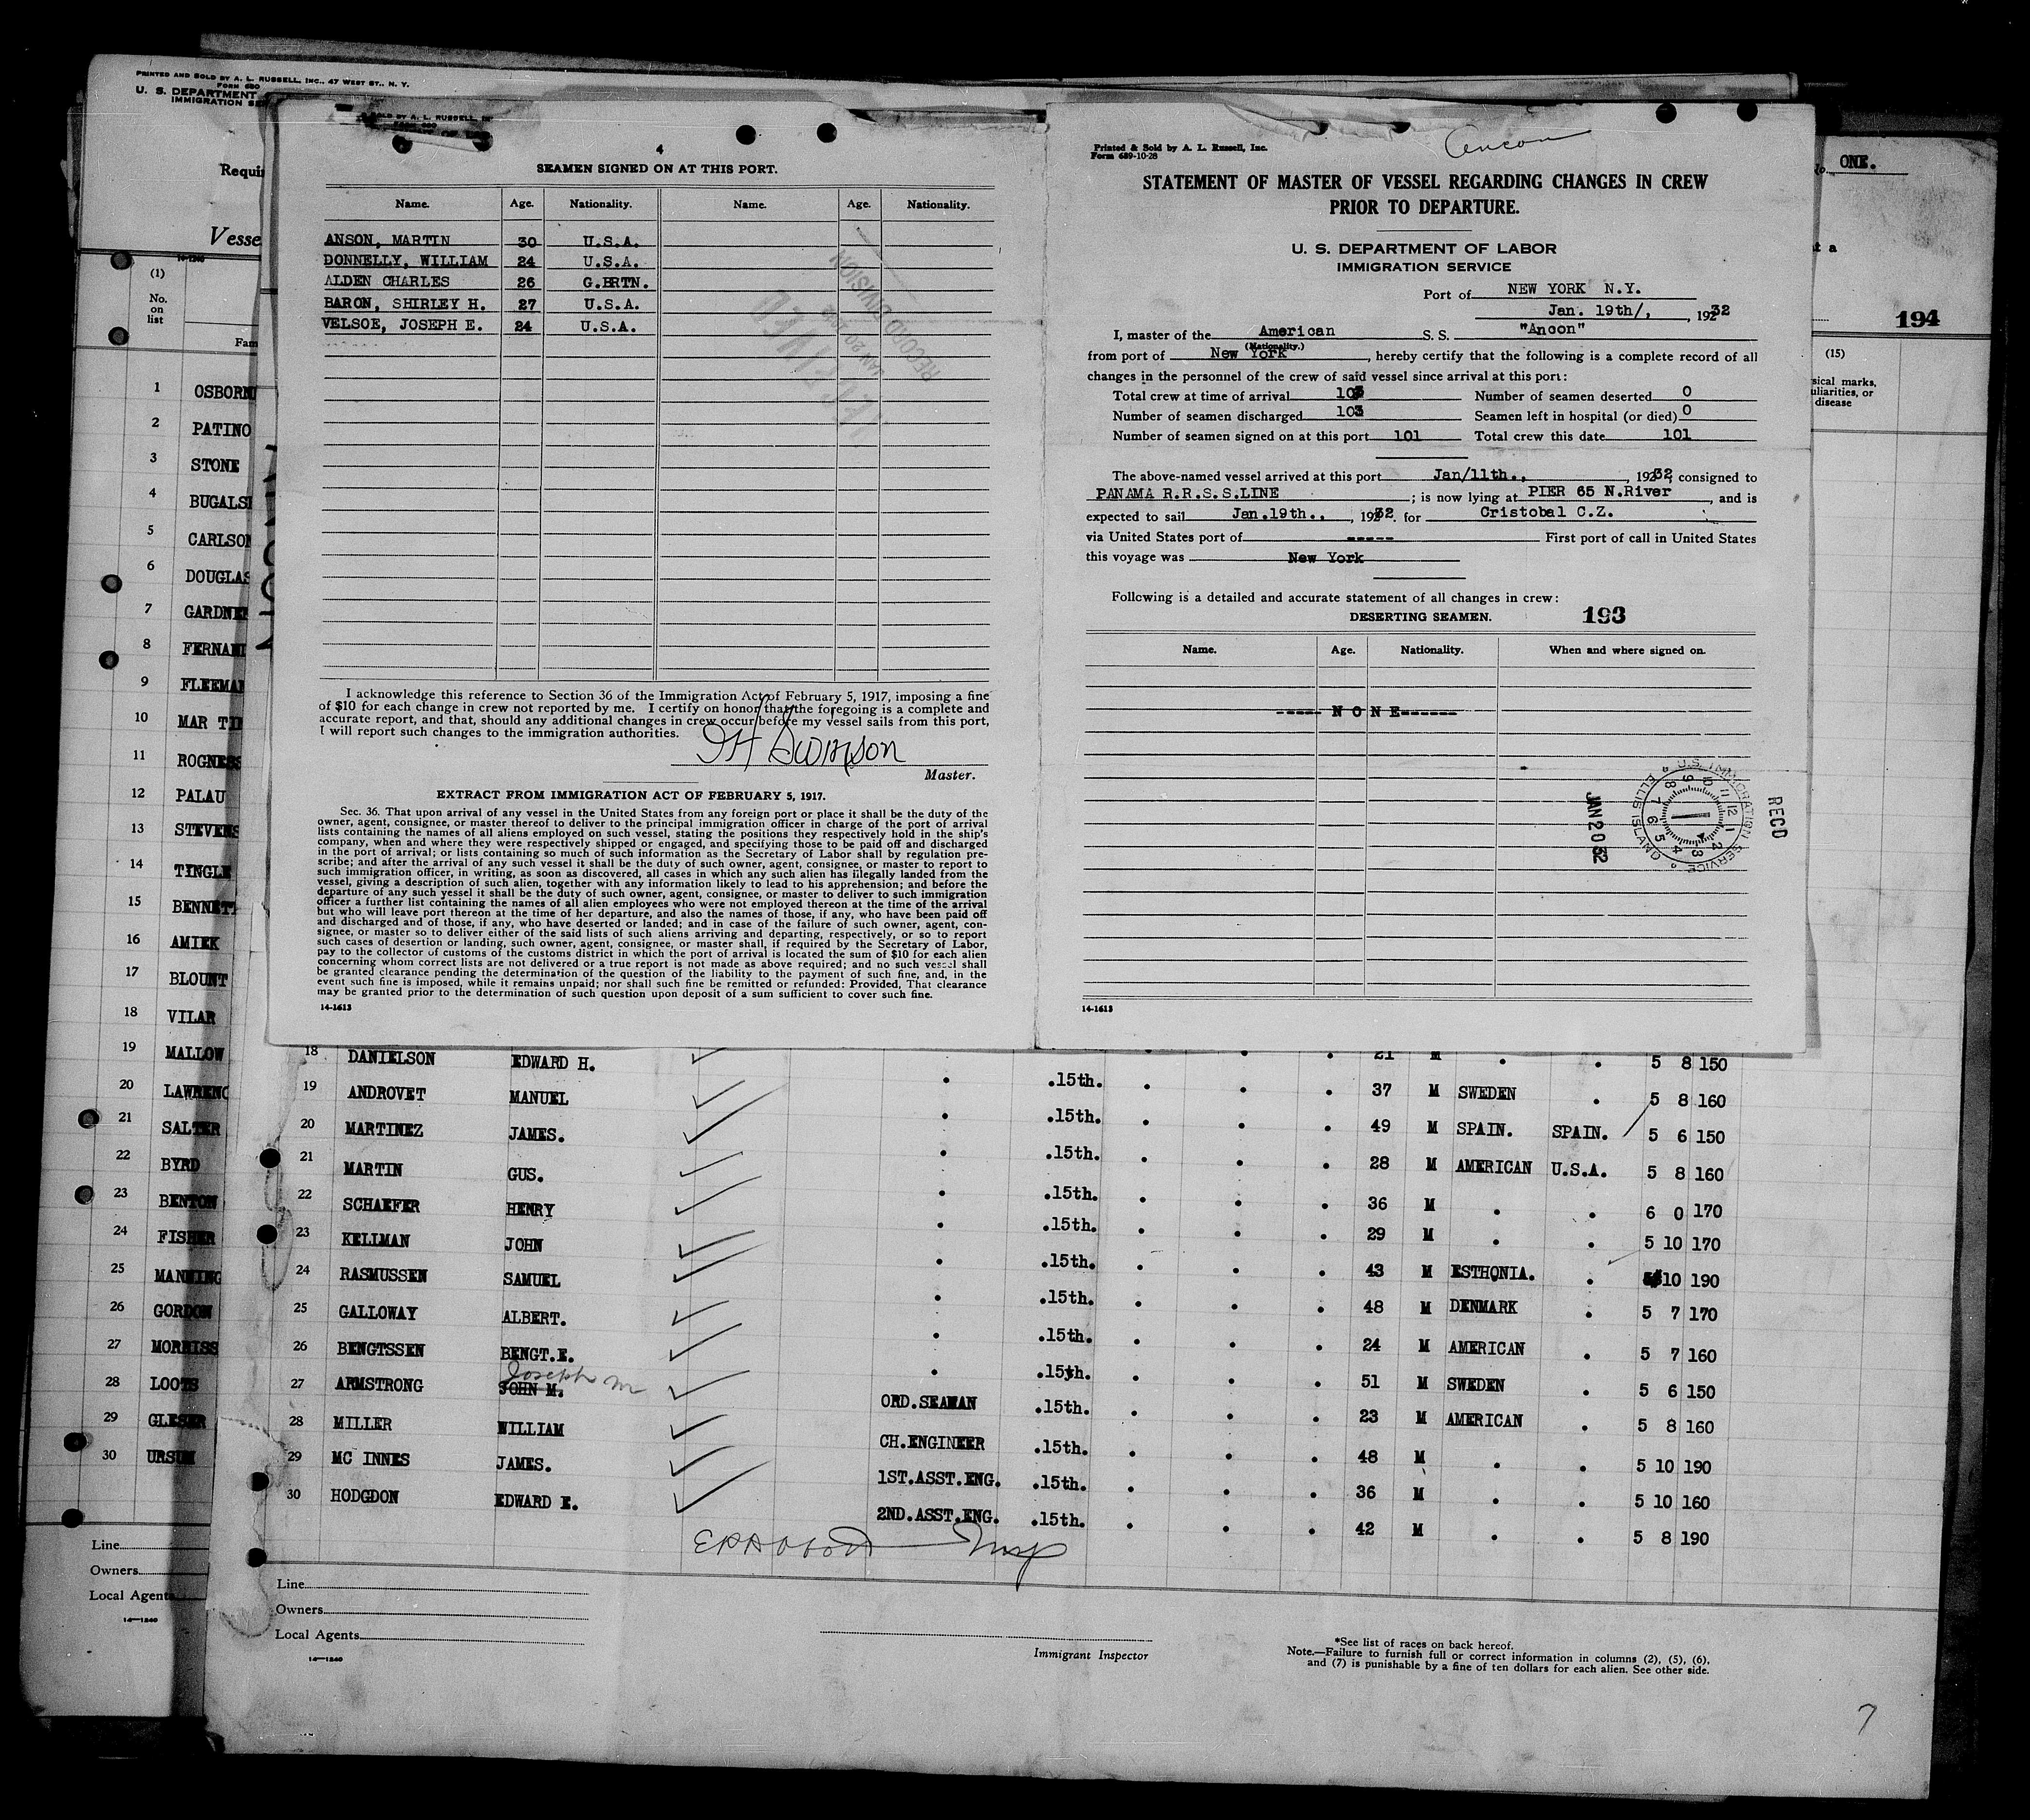 PRINTED AND SOLD BY A. L. RUSSELL, INC., 47 WEST ST., N. Y.
FORM 680
U. S. DEPARTMENT
IMMIGRATION SE
Requi
Vesse
14-1240
(1)
No.
on
list
Fam
1 OSBORN
2 PATINO
3 STONE
4 BUGALS
5 CARLSON
6 DOUGLAS
7 GARDNER
8 FERNAND
9 FLEEMAN
10 MAR TIN
11 ROGNESS
12 PALAU
13 STEVENS
14 TINGLE
15 BENNETT
16 AMIEK
17 BLOUNT
18 VILAR
19 MALLOW
20 LAWRENC
21 SALTER
22 BYRD
23 BENTON
24 FISHER
25 MANNING
26 GORDON
27 MORRISS
28 LOOTS
29 GLESER
30 URSUM
Line
Owners
Local Agents
14-1240
4
SEAMEN SIGNED ON AT THIS PORT.
Name. Age. Nationality. Name. Age. Nationality.
ANSON, MARTIN 30 U.S.A.
DONNELLY, WILLIAM 24 U.S.A.
ALDEN CHARLES 26 G.BRTN.
BARON, SHIRLEY H. 27 U.S.A.
VELSOE, JOSEPH E. 24 U.S.A.
RECEIVED
JAN 20 1932
RECORD DIVISION
I acknowledge this reference to Section 36 of the Immigration Act of February 5, 1917, imposing a fine
of $10 for each change in crew not reported by me. I certify on honor that the foregoing is a complete and
accurate report, and that, should any additional changes in crew occur before my vessel sails from this port,
I will report such changes to the immigration authorities.
Swinson
Master.
EXTRACT FROM IMMIGRATION ACT OF FEBRUARY 5, 1917.
Sec. 36. That upon arrival of any vessel in the United States from any foreign port or place it shall be the duty of the
owner, agent, consignee, or master thereof to deliver to the principal immigration officer in charge of the port of arrival
lists containing the names of all aliens employed on such vessel, stating the positions they respectively hold in the ship's
company, when and where they were respectively shipped or engaged, and specifying those to be paid off and discharged
in the port of arrival; or lists containing so much of such information as the Secretary of Labor shall by regulation pre-
scribe; and after the arrival of any such vessel it shall be the duty of such owner, agent, consignee, or master to report to
such immigration officer, in writing, as soon as discovered, all cases in which any such alien has illegally landed from the
vessel, giving a description of such alien, together with any information likely to lead to his apprehension; and before the
departure of any such vessel it shall be the duty of such owner, agent, consignee, or master to deliver to such immigration
officer a further list containing the names of all alien employees who were not employed thereon at the time of the arrival
but who will leave port thereon at the time of her departure, and also the names of those, if any, who have been paid off
and discharged and of those, if any, who have deserted or landed; and in case of the failure of such owner, agent, con-
signee, or master so to deliver either of the said lists of such aliens arriving and departing, respectively, or so to report
such cases of desertion or landing, such owner, agent, consignee, or master shall, if required by the Secretary of Labor,
pay to the collector of customs of the customs district in which the port of arrival is located the sum of $10 for each alien
concerning whom correct lists are not delivered or a true report is not made as above required; and no such vessel shall
be granted clearance pending the determination of the question of the liability to the payment of such fine, and, in the
event such fine is imposed, while it remains unpaid; nor shall such fine be remitted or refunded: Provided, That clearance
may be granted prior to the determination of such question upon deposit of a sum sufficient to cover such fine.
14-1613
Ancon
Printed & Sold by A. L. Russell, Inc.
Form 689-10-28
STATEMENT OF MASTER OF VESSEL REGARDING CHANGES IN CREW
PRIOR TO DEPARTURE.
U. S. DEPARTMENT OF LABOR
IMMIGRATION SERVICE
Port of NEW YORK N.Y.
Jan. 19th/, , 1932
I, master of the American S. S. "Ancon"
(Nationality.)
from port of New York, hereby certify that the following is a complete record of all
changes in the personnel of the crew of said vessel since arrival at this port:
Total crew at time of arrival 103 Number of seamen deserted 0
Number of seamen discharged 103 Seamen left in hospital (or died) 0
Number of seamen signed on at this port 101 Total crew this date 101
The above-named vessel arrived at this port Jan/11th., , 1932, consigned to
PANAMA R.R.S.S.LINE ; is now lying at PIER 65 N.River, and is
expected to sail Jan.19th., , 1932. for Cristobal C.Z.
via United States port of ----- First port of call in United States
this voyage was New York
Following is a detailed and accurate statement of all changes in crew:
DESERTING SEAMEN. 193
Name. Age. Nationality. When and where signed on.
----- N O N E------
RECD
U.S. IMMIGRATION SERVICE
ELLIS ISLAND
JAN 20 32
14-1613
No. ONE.
t a
194
(15)
sical marks,
uliarities, or
disease
18 DANIELSON EDWARD H. 21 M . . 5 8 150
19 ANDROVET MANUEL . .15th. . . . 37 M SWEDEN . 5 8 160
20 MARTINEZ JAMES. . .15th. . . . 49 M SPAIN. SPAIN. 5 6 150
21 MARTIN GUS. . .15th. . . . 28 M AMERICAN U.S.A. 5 8 160
22 SCHAEFER HENRY . .15th. . . . 36 M . . 6 0 170
23 KELLMAN JOHN . .15th. . . . 29 M . . 5 10 170
24 RASMUSSEN SAMUEL . .15th. . . . 43 M ESTHONIA. . 10 190
25 GALLOWAY ALBERT. . .15th. . . . 48 M DENMARK . 5 7 170
26 BENGTSSEN BENGT.E. . .15th. . . . 24 M AMERICAN . 5 7 160
Joseph M
27 ARMSTRONG JOHN M. . .15th. . . . 51 M SWEDEN . 5 6 150
28 MILLER WILLIAM ORD.SEAMAN .15th. . . . 23 M AMERICAN . 5 8 160
29 MC INNES JAMES. CH.ENGINEER .15th. . . . 48 M . . 5 10 190
30 HODGDON EDWARD E. 1ST.ASST.ENG. .15th. . . . 36 M . . 5 10 160
2ND.ASST.ENG. .15th. . . . 42 M . . 5 8 190
Insp
Line
Owners
Local Agents
14-1240
Immigrant Inspector
*See list of races on back hereof.
Note.—Failure to furnish full or correct information in columns (2), (5), (6),
and (7) is punishable by a fine of ten dollars for each alien. See other side.
7